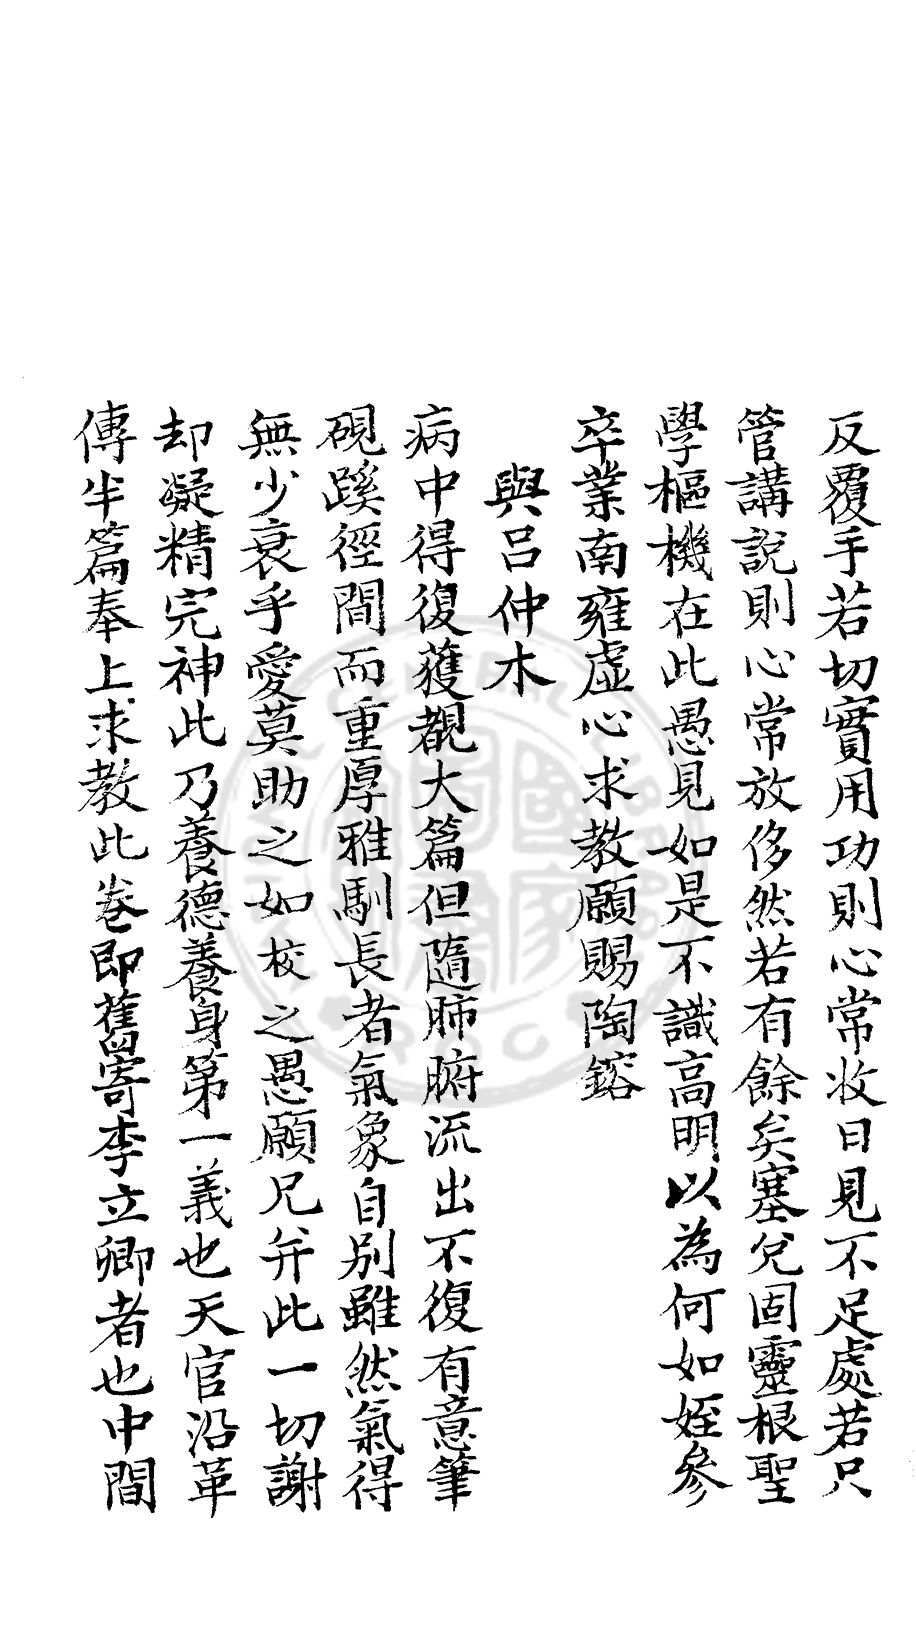 反覆手若切實用功則心常收日見不足處若只
管講說則心常放侈然若有餘矣塞兌固靈根聖
學樞機在此愚見如是不識高明以為何如姪參
卒業南雍虛心求教願賜陶鎔
與呂仲木
病中得復蒦覩大篇但隨肺腑流出不復有意筆
硯蹊徑間而重厚雅馴長者氣象自別雖然氣得
無少衰乎愛莫助之如校之愚願兄并此一切謝
却凝精完神此乃養德養身第一義也天官沿革
傳半篇奉上求教此卷即舊寄李立卿者也中間